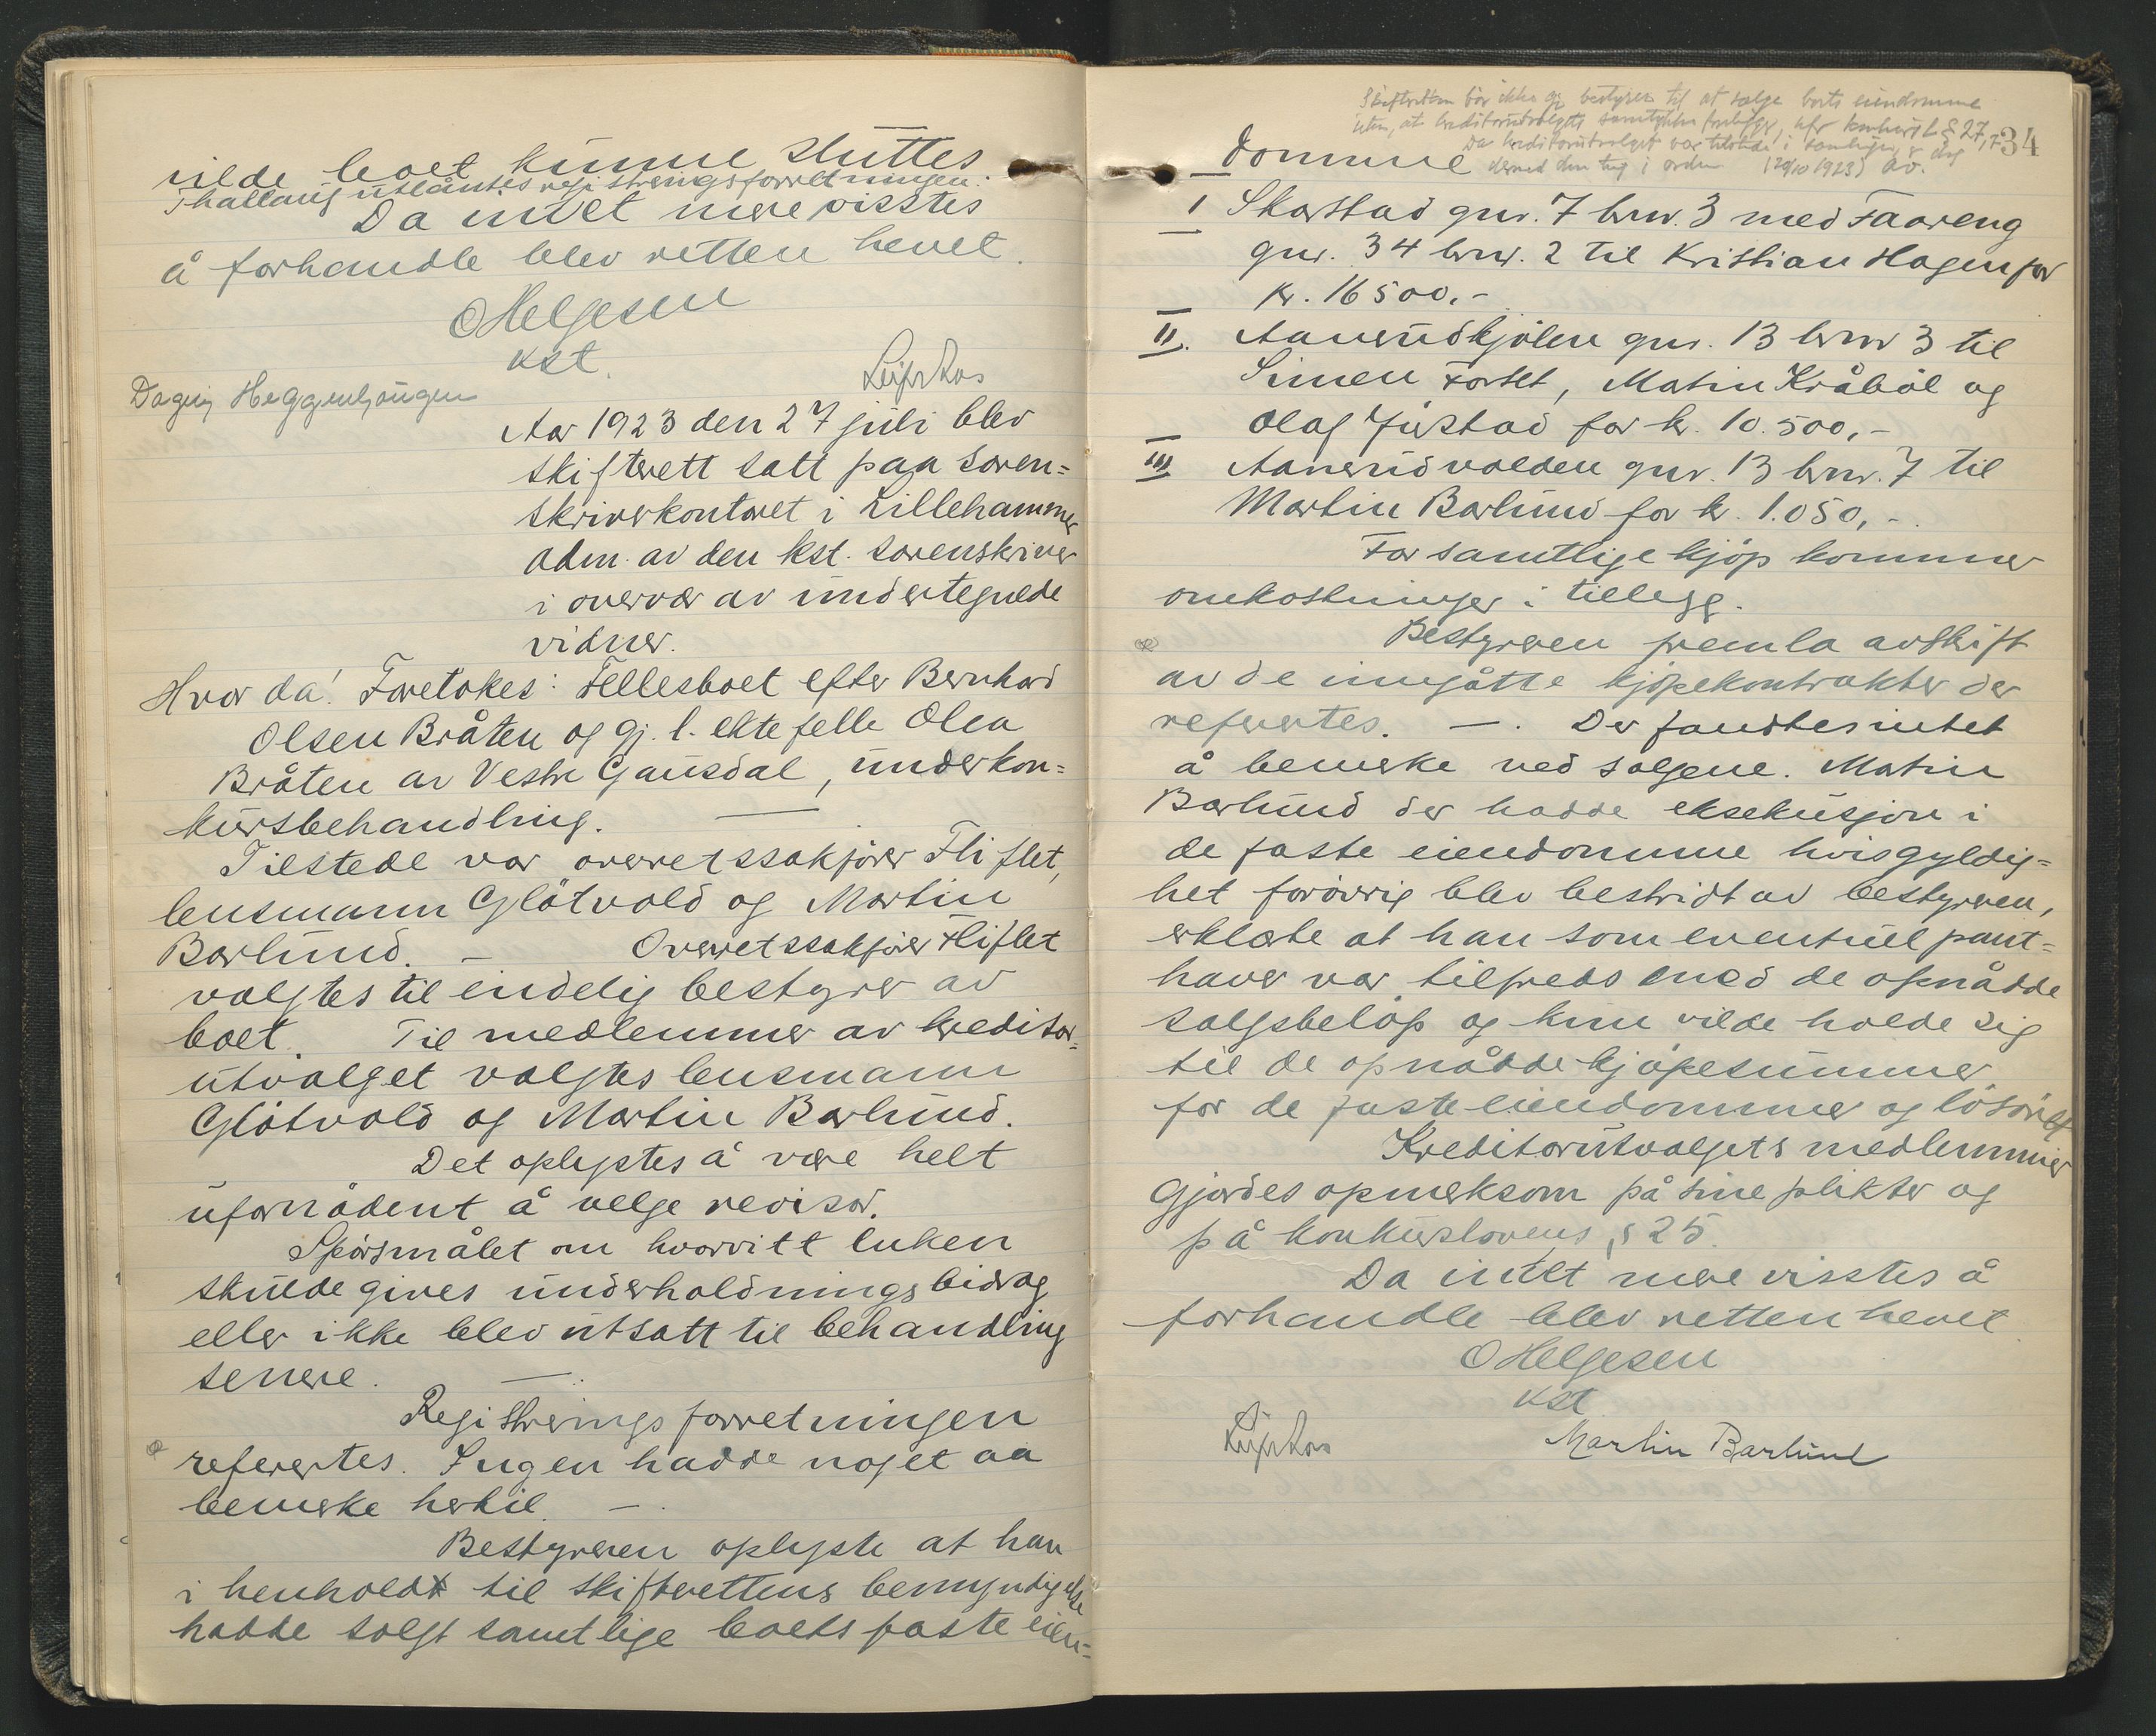 vilde boet kunne sluttes
Thallaug utlåntes registreringsforretningen.
Da intet mere visstes
å forhandle blev retten hevet.
O Helgesen
kst.
Dagny Heggenhougen
Aar 1923 den 27 juli blev
skifterett satt paa soren=
skriverkontoret i Lillehammer
adm. av den kst. sorenskriver
i overvær av undertegnede
vidner.
Hvor da! Foretokes: Fellesboet efter Bernhard
Olsen Bråten og gj. l. ektefelle Olea
Bråten av Vestre Gausdal, under kon=
kursbehandling. —
Tilstede var overretssakfører Fliflet,
lensmann Glötvold og Martin
Barlund. — Overretssakfører Fliflet
valgtes til endelig bestyrer av
boet. Til medlemmer av kreditor=
utvalget valgtes lensmann
Glötvold og Martin Barlund.
Det oplystes å være helt
ufornödent å velge revisor.
Spörsmålet om hvorvitt enken
skulde gives underholdningsbidrag
eller ikke blev utsatt til behandling
senere. —
Registreringsforretningen
refertes. Ingen hadde noget aa
bemerke hertil. —
Bestyreren oplyste at han
i henhold til skifterettens bemyndigelse
hadde solgt samtlige boets faste eien=
Skifteretten bør ikke gi bestyrer til at sælge borts eiendomme
uten, at kreditorutvalgets samtykke foreligger, kfr konkursl § 27, 7
Da kreditorutvalget var tilstede i samlingen, er dog
dermed den ting i orden (29/10 1923) av.
34
domme
I Skarstad gnr. 7 brnr. 3 med Faareng
gnr. 34 brnr. 2 til Kristian Hagen for
kr. 16500.-
II. Aanerudkjölen gnr. 13 brnr 3 til
Simen Forset, Matin Kråböl og
Olaf Justad for kr. 10.500,-
III Aanerudvolden gnr. 13 brnr. 7 til
Martin Barlund for kr. 1.050,-.
For samtlige kjöp kommer
omkostninger i tillegg.
Bestyreren fremla avskrift
av de inngåtte kjöpekontrakter der
refertes. —. Der fandtes intet
å bemerke ved salgene. Matin
Barlund der hadde eksekusjon i
de faste eiendomme hvis gyldig=
het forövrig blev bestridt av bestyreren,
erklærte at han som eventuel pant=
haver var tilfreds med de opnådde
salgsbelöp og kun vilde holde sig
til de opnådde kjöpesummer
for de faste eiendommer og lösöre
Kreditorutvalgets medlemmer
gjordes opmerksom på sine plikter og
på konkurslovens § 25.
Da intet mere visstes å
forhandle blev retten hevet
O Helgesen
kst
Martin Barlund